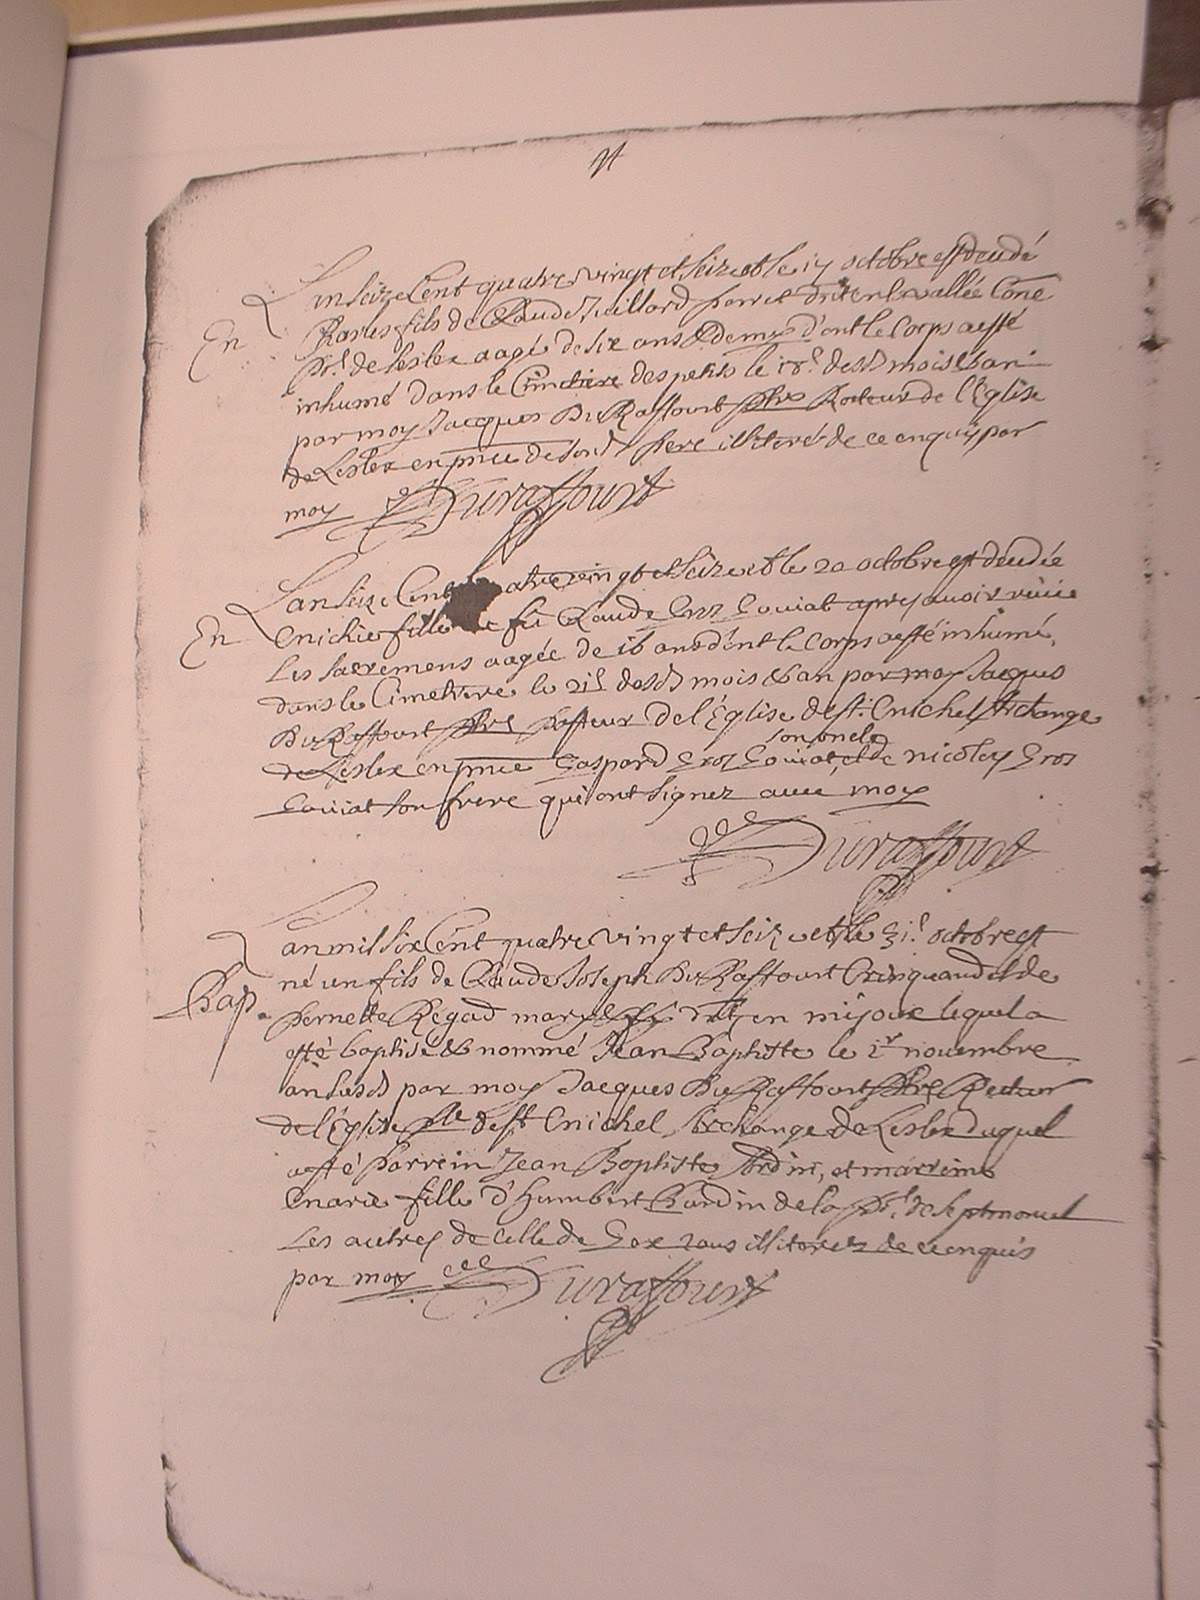 En
Lan seize Cent quatre vingt et seize et le 17 octobre est decedé
Charles fils de Claude Juillard perret dit en la vallée Cone
de Leslex aagé de six ans & demy d'ont le Corps a esté
inhumé dans le Cimetiere des petits le 18e desd mois & an
par moy Jacques DuRaffourt pbre Recteur de l'Eglise
de Leslex en pnce de sond pere illiteré de ce enquis par
moy Duraffourt
En
Lan seize Cent quatre vingt et seize et le 20 octobre est decedée
fille de feu Claude Groz Goviat apres avoir
Les Sacremens aagée de 16 ans dont le Corps a esté inhumé
dans le Cimetiere le 21e desd mois & an par moy Jacques
DuRaffourt pbre Pasteur de l'Eglise de st. Michel Archange
de Leslex en pnce Gaspard Groz Goviat son oncle et de nicolas Groz
Goviat son frere qui ont signez avec moy
Duraffourt
Bap.
Lan mil six Cent quatre vingt et seize et le 31e octobre est
né un fils de Claude Joseph DuRaffourt Crinquand et de
Pernette Regad mariez en mijoux lequel a
esté baptisé & nommé Jean Baptiste le 1er novembre
an susd par moy Jacques DuRaffourt pbre Recteur
de l'Eglise de st Michel Archange de Leslex Duquel
a esté Parrein Jean Baptiste et marreine
Marie fille d'humbert de la de Septmoncel
Les autres de Celle de Gex tous illiterez de ce enquis
par moy Duraffourt